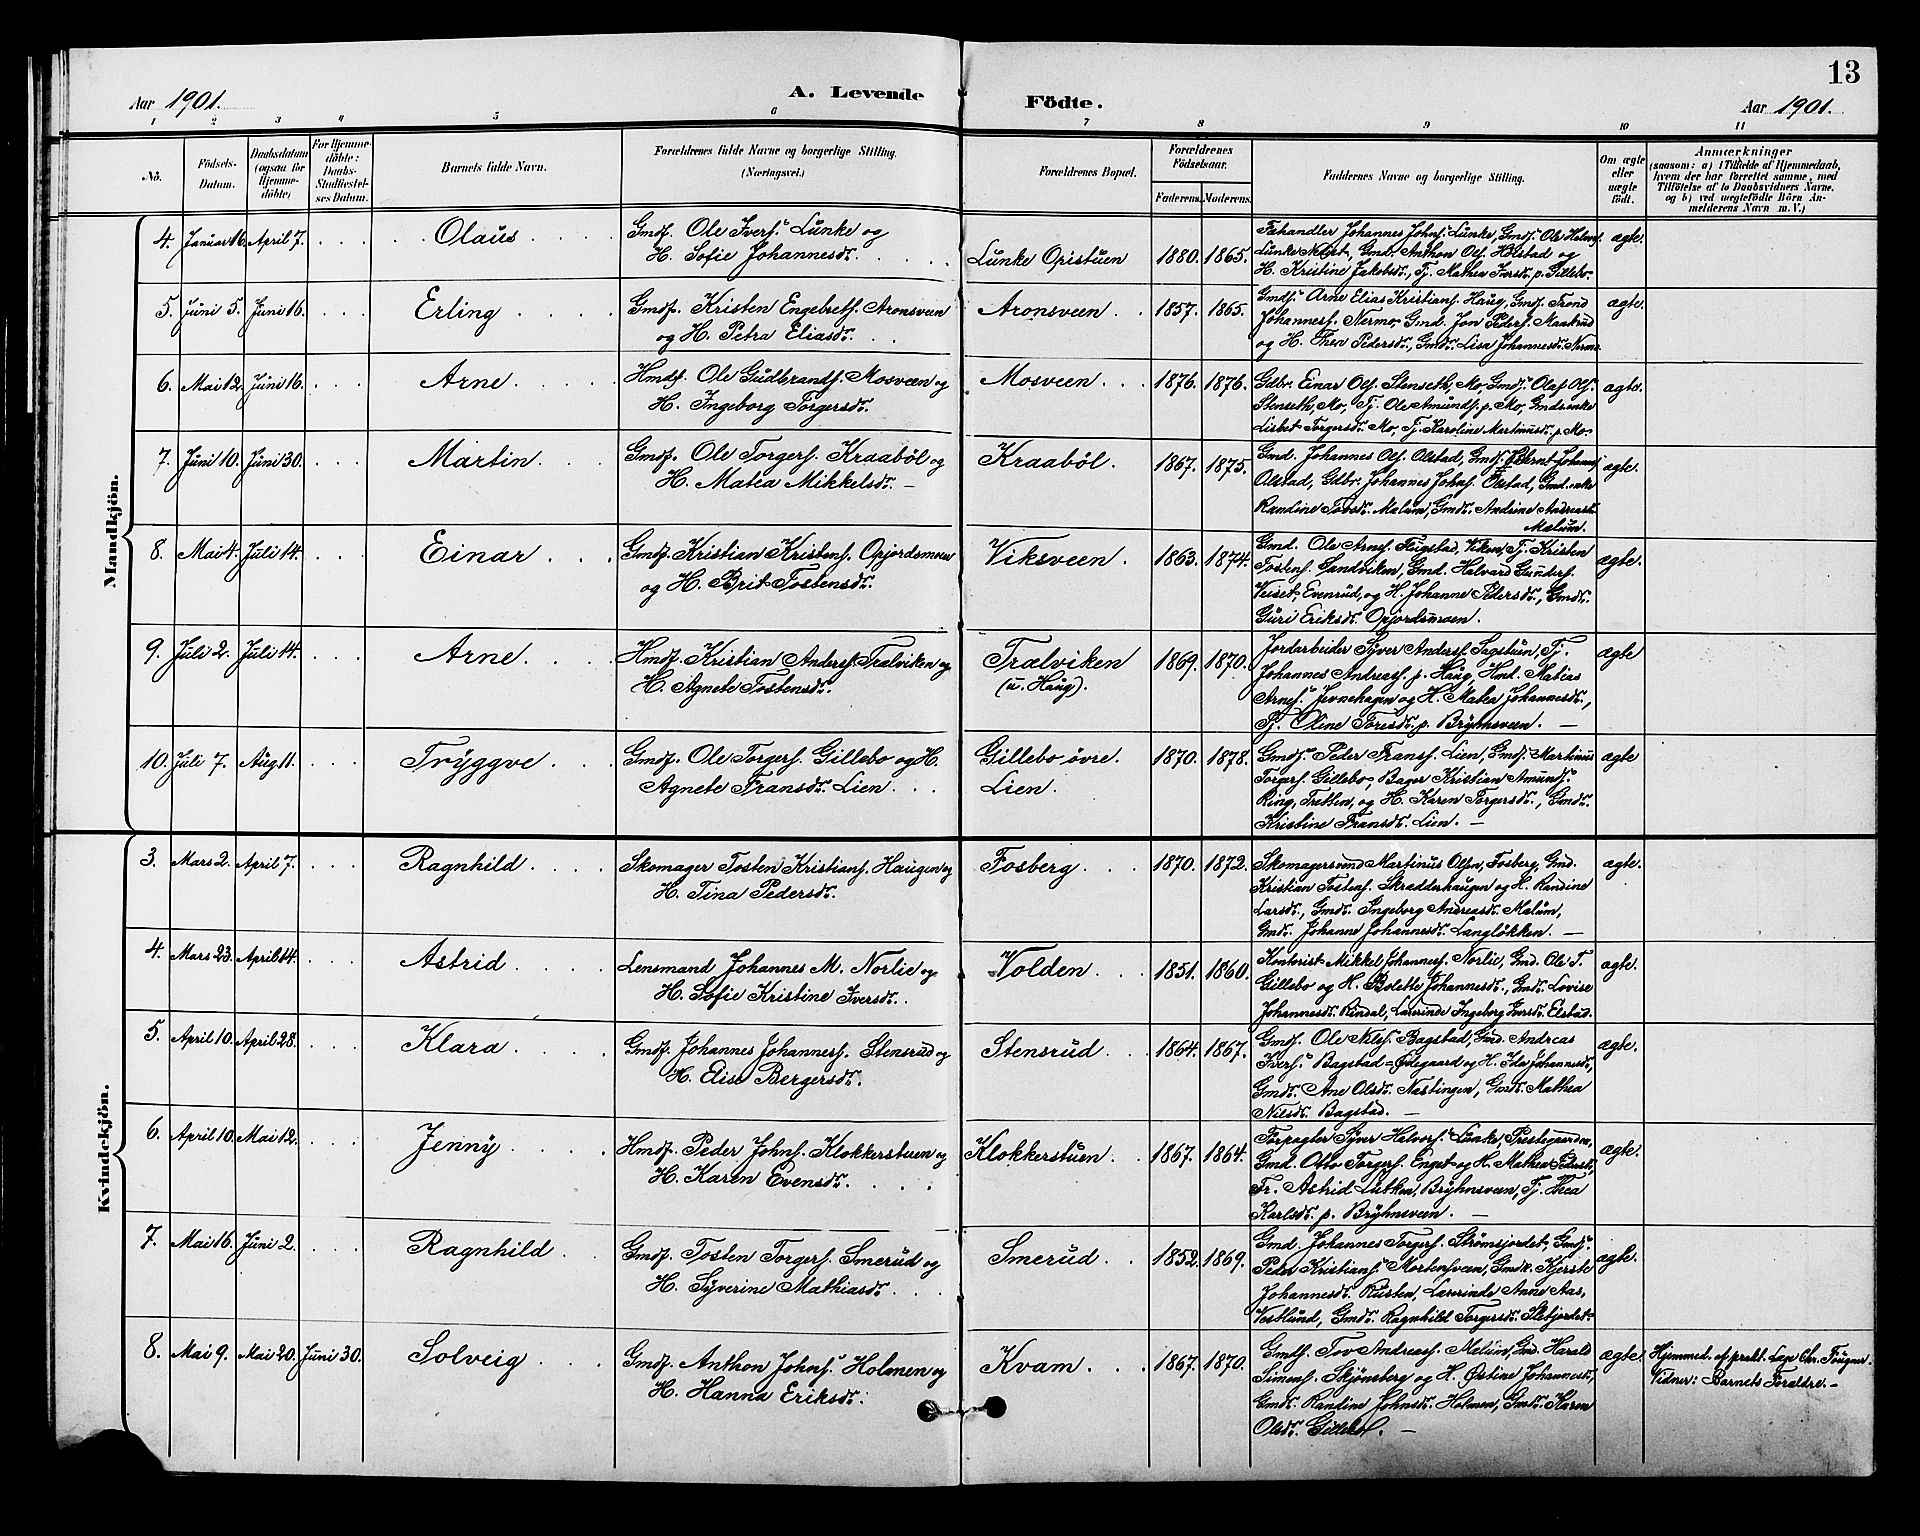 13
Aar 1901. A. Levende Födte. Aar 1901.
1 2 3 4 5 6 7 8 9 10 11
No. Födsels-Datum. Daabsdatum (ogsaa for Hjemmedöbte) For Hjemmedöbte: Daabs-Stadfæstelses Datum. Barnets fulde Navn. Forældrenes fulde Navne og borgerlige Stilling. (Næringsvei.) Forældrenes Bopæl. Forældrenes Födselsaar. Faderens. Moderens. Faddernes Navne og borgerlige Stilling. Om ægte eller uægte födt. Anmærkninger
(saasom: a) i Tilfælde af Hjemmedaab, hvem der har forrettet samme, med Tilföielse af to Daabsvidners Navne, og b) ved uægtefödte Börn Anmelderens Navn m. V.)
Mandkjön.
4. Januar 16. April 7. Olaus Gmdf. Ole Ivers. Lunke og
H. Sofie Johannesdr.
Lunke Opistuen 1880. 1865.
Fehandler Johannes Johns. Lunke, Gmdf. Ole Halvors.
Lunke, Gmd. Anthon Ols. Holstad og
H. Kristine Jakobsdr., Tj. Mathea Iversdr. p. Gillebo.
ægte.
5. Juni 5. Juni 16. Erling Gmdf. Kristen Engebrets. Aronsveen
og H. Petra Eliasdr.
Aronsveen 1857. 1865.
Gmds. Arne Elias Kristians. Haug, Gmdf. Trond
Johanness. Nermo, Gmd. Jon Peders. Maakrud
og H. Thea Pedersdr., Gmdr. Lisa Johannesdr. Nermo
ægte.
6. Mai 12. Juni 16. Arne Hmdf. Ole Gudbrands. Mosveen og
H. Ingeborg Torgersdr.
Mosveen 1876. 1876.
Gdbr. Einar Ols. Stenseth, Mo, Gmdf. Olaf Ols.
Stenseth, Mo, Tj. Ole Amunds. p. Mo, Gmdsenke
Lisbet Torgersdr. Mo, Tj. Karoline Martinusdr. p. Mo.
ægte.
7. Juni 10. Juni 30. Martin Gmdf. Ole Torgers. Kraaböl og
H. Matea Mikkelsdr.
Kraaböl 1867. 1875.
Gmd. Johannes Ols. Olstad, Gmdf. Bernt Johans.
Olstad, Gdbr. Johannes Johns. Olstad, Gmd. enke
Randine Tovsdr. Malum, Gmdr. Andrine Andreasdr.
Malum.
ægte.
8. Mai 4. Juli 14. Einar Gmdf. Kristian Kristens. Opjordsmoen
og H. Brit Tostensdr.
Viksveen 1863. 1874.
Gmd. Ole Arnes. Flugstad, Viken, Tj. Kristen
Tostens. Sandviken, Gmd. Halvard Gunders.
Veiset, Evenrud, og H. Johanne Pedersdr., Gmdr.
Guri Eriksdr. Opjordsmoen.
ægte.
9. Juli 2. Juli 14. Arne Hmdf. Kristian Anders. Trælviken og
H. Agnete Tostensdr.
Trælviken
(u. Haug).
1869. 1870.
Jordarbeider Syver Anders. Sagstuen, Tj.
Johannes Andreas. p. Haug, Hmd. Matias
Arnes. Jevnehagen og H. Matea Johannesdr.,
Pj. Oline Toresdr. p. Bryhnsveen.
ægte
10. Juli 7. Aug 11. Tryggve Gmdf. Ole Torgers. Gillebo og H.
Agnete Fransdr. Lien
Gillebo övre.
Lien.
1870. 1878.
Gmds. Peder Frans. Lien, Gmds. Martinus
Torgers. Gillebo, Bager Kristian Amunds.
Ring, Tretten, og H. Karen Torgersdr., Gmdr.
Kristine Fransdr. Lien.
ægte
Kvindekjön.
3. Mars 2. April 7. Ragnhild Skomager Tosten Kristians. Haugen og
H. Tina Pedersdr.
Fosberg 1870. 1872.
Skomagersvend Martinus Olsen, Fosberg, Gmd.
Kristian Tostens. Skrædderhaugen og H. Randine
Larsdr., Gmdr. Ingeborg Andreasdr. Malum,
Gmdr. Johanne Johannesdr. Langlökken.
ægte.
4. Mars 23. April 14. Astrid Lensmand Johannes M. Norlie og
H. Sofie Kristine Iversdr.
Volden 1851. 1860.
Kontorist Mikkel Johanness. Norlie, Gmd. Ole T.
Gillebo og H. Bolette Johannesdr., Gmdr. Lovise
Johannesdr. Rindal, Lærerinde Ingeborg Iversdr. Elstad.
ægte.
5. April 10. April 28. Klara Gmdf. Johannes Johanness. Stensrud og
H. Elise Bergersdr.
Stensrud 1864. 1867.
Gmdf. Ole Nils. Bagstad, Gmd. Andreas
Ivers. Bagstad-Ödegaard og H. Ida Johannesdr.,
Gmdr. Ane Olsdr. Nastingen, Gmdr. Mathea
Nilsdr. Bagstad.
ægte.
6. April 10. Mai 12. Jenny Hmdf. Peder Johns. Klokkerstuen og
H. Karen Evensdr.
Klokkerstuen 1867. 1864.
Forpagter Syver Halvors. Lunke, Prestegaarden,
Gmd. Otto Torgers. Enget og H. Mathea Pedersdr.,
Fr. Astrid Lütken, Bryhnsveen, Tj. Thea
Karlsdr. p. Bryhnsveen.
ægte.
7. Mai 16. Juni 2. Ragnhild Gmdf. Tosten Torgers. Smerud og
H. Syverine Mathiasdr.
Smerud 1852. 1869.
Gmd. Johannes Torgers. Strömsjordet, Gmds.
Peder Kristians. Mortensveen, Gmdk. Kjerste
Johannesdr. Rusten, Lærerinde Anne Aas,
Vestlund, Gmdr. Ragnhild Torgersdr. Slebjordet.
ægte.
8. Mai 9. Mai 20. Juni 30. Solveig Gmdf. Anthon Johns. Holmen og
H. Hanna Eriksdr.
Kvam 1867. 1870.
Gmds. Tov Andreass. Melum, Gmd. Harald
Simens. Skjönsberg og H. Östine Johannesdr.,
Gmdr. Randine Johnsdr. Holmen, Gmdr. Karen
Olsdr. Gillebo.
ægte.
Hjemmed. af prakt. Læge Chr. Tougner.
Vidner: Barnets Forældre.